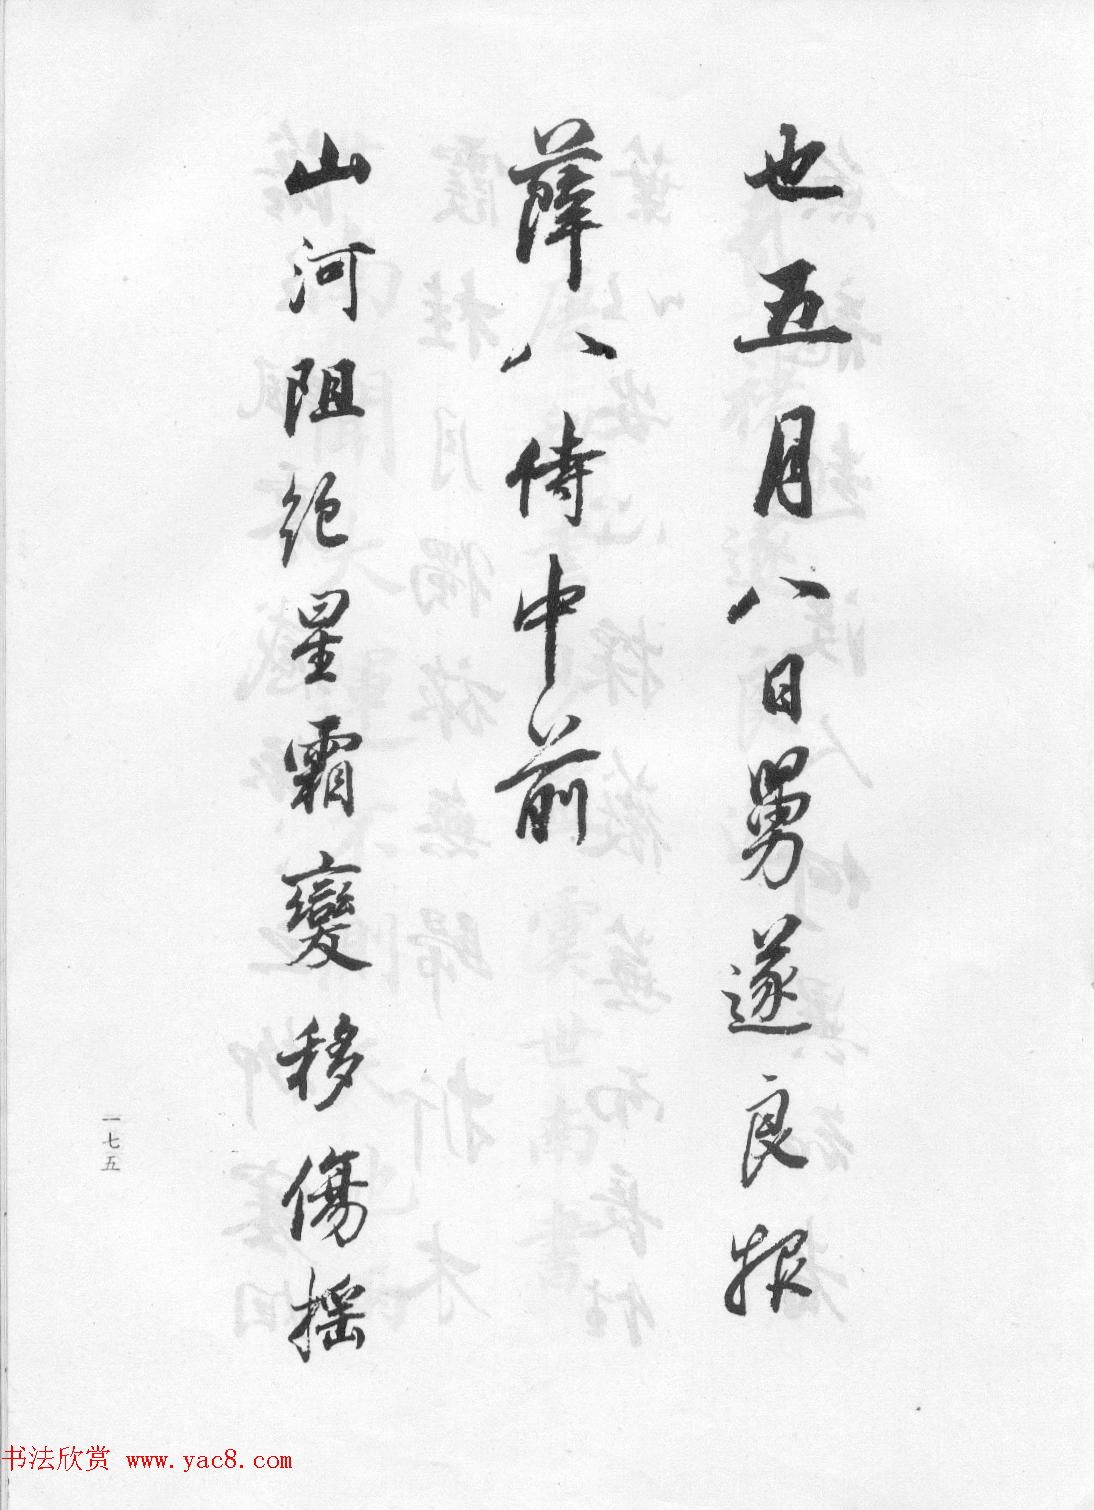 也五月八日舅遂良报
薛八侍中前
山河阻绝星霜變移傷摇
一七五
书法欣赏 www.yac8.com